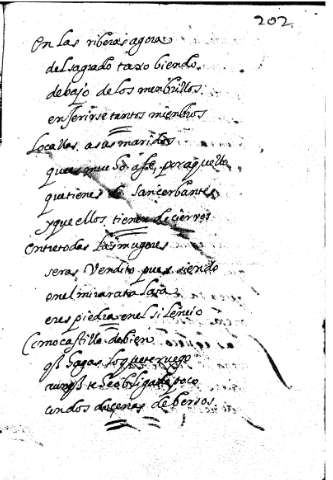 202.
En las riberas agora
del sagrado taxo biendo
debajo de los menbrillos
enserirse tantos mienbros
Locallos a sus maridos
que es mucho a fe, por aquello
que tienes de Sancerbantes
y que ellos tienen de cierros
Entre todas las mugeres
seras Vendito, pues siendo
en el mirar atalaya
eres piedra en el silencio
Como castillo de bien
q̃ hagas lo q̃ te ruego
aunq̃ te he obligado poco
en dos docenas de bersos